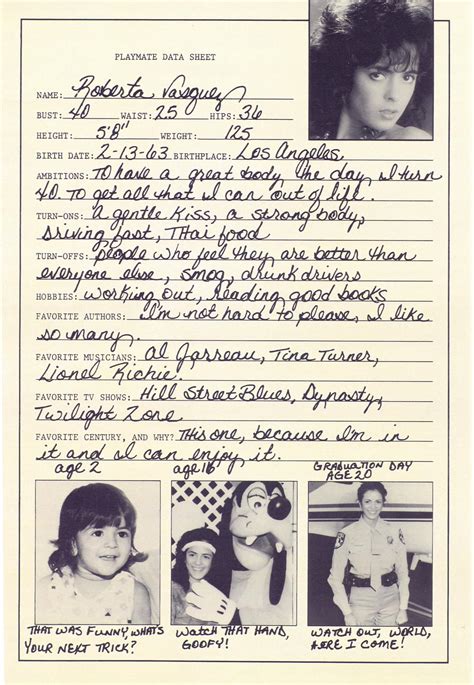 PLAYMATE DATA SHEET
NAME: Roberta Vasquez
BUST: 40 WAIST: 25 HIPS: 36
HEIGHT: 5'8" WEIGHT: 125
BIRTH DATE: 2-13-63 BIRTHPLACE: Los Angeles
AMBITIONS: To have a great body the day I turn
40. To get all that I can out of life.
TURN-ONS: A gentle kiss, a strong body,
driving fast, Thai food
TURN-OFFS: people who feel they are better than
everyone else, smog, drunk drivers
HOBBIES: working out, reading good books
FAVORITE AUTHORS: I'm not hard to please, I like
so many.
FAVORITE MUSICIANS: Al Jarreau, Tina Turner,
Lionel Richie.
FAVORITE TV SHOWS: Hill Street Blues, Dynasty,
Twilight Zone
FAVORITE CENTURY, AND WHY? This one, because I'm in
it and I can enjoy it.
age 2 age 16 GRADUATION DAY
AGE 20
THAT WAS FUNNY, WHAT'S Watch THAT HAND, WATCH OUT, WORLD,
YOUR NEXT TRICK? GOOFY! HERE I COME!